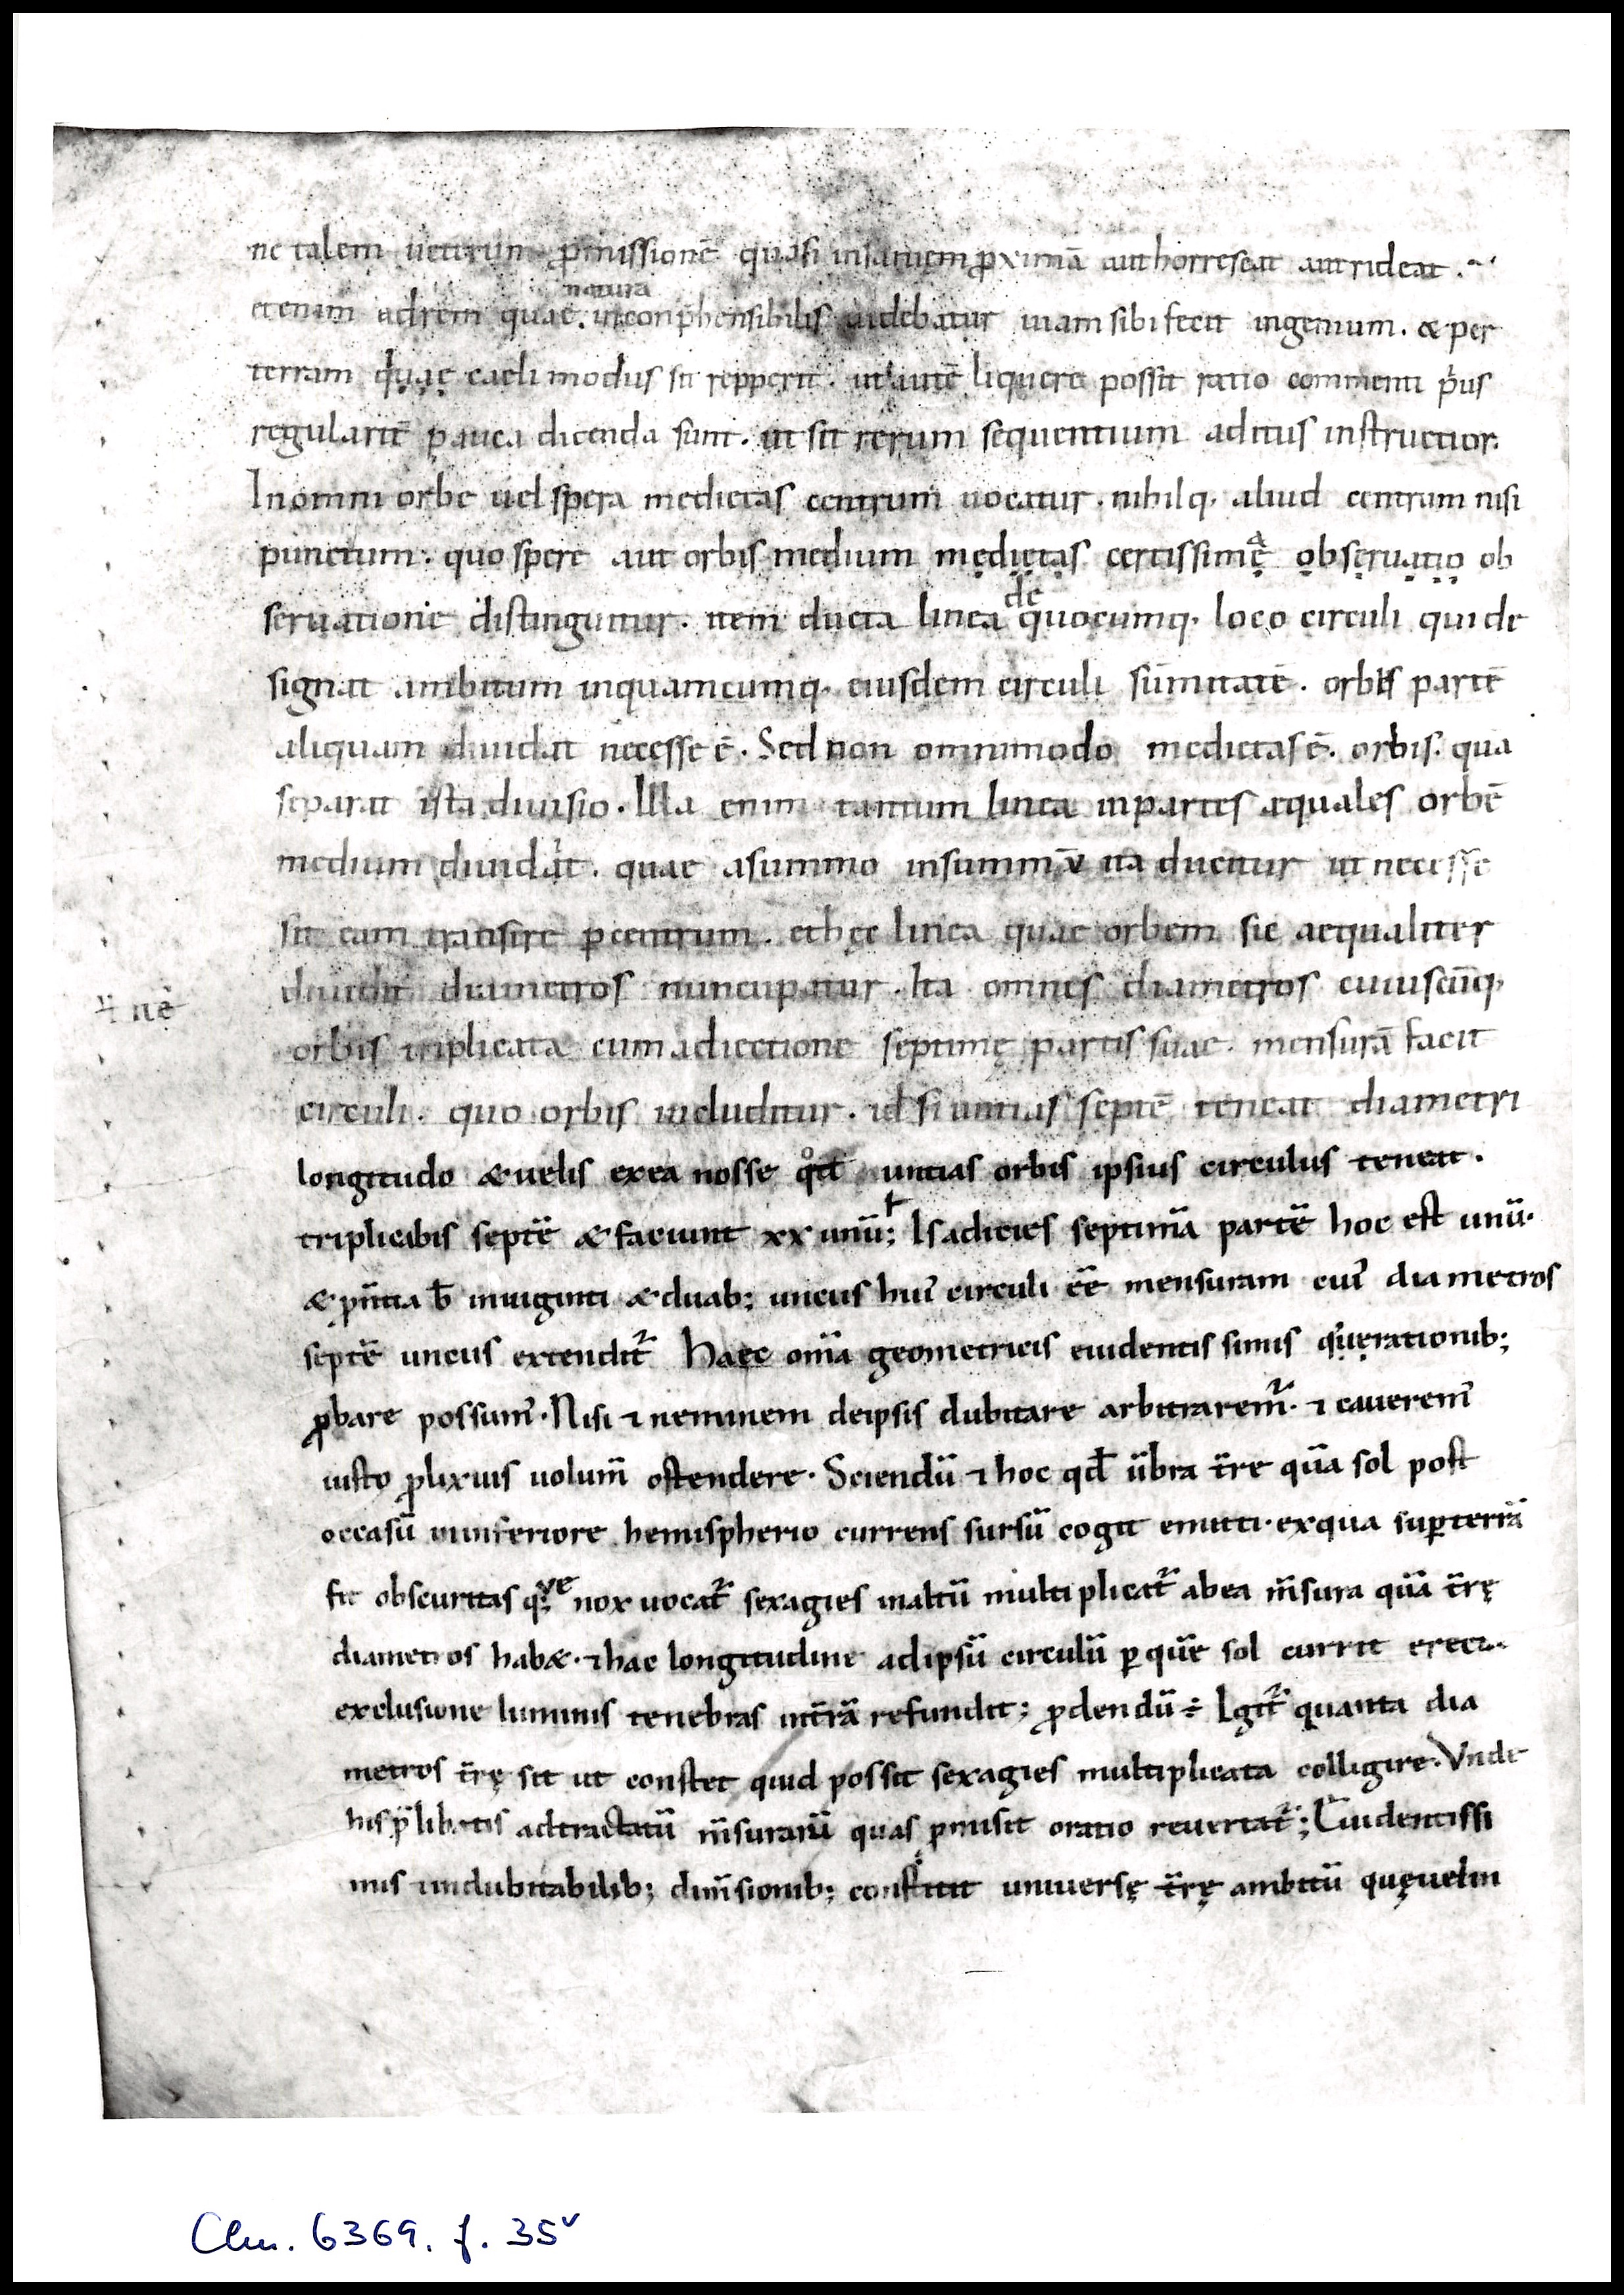 ne talem uetutum p̄missionē quasi insaniem ꝓximā aut horrescat aut rideat.
natura
etenim ad rem quae. inconp̄hensibilis uidebatur uiam sibi fecit ingenium. & per
terram quae caeli modus sit repperit. ut autē liquere possit ratio commenti p'us
regularit̄ pauca dicenda sunt. ut sit rerum sequentium aditus instructior.
In omni orbe uel spera medietas centrum uocatur. nihilq. aliud centrum nisi
punctum. quo spere aut orbis medium medietas certissimę obseruatio ob
de
seruatione distinguitur. item ducta linea quocumq. loco circuli qui de
signat ambitum in quamcumq. eiusdem circuli sūmitatē. orbis partē
aliquam diuidat necesse ē. Sed non omnimodo medietas ē. orbis. qua
separat ista diuisio. Illa enim tantum linea in partes aequales orbē
medium diuidit. quae a summo in summū ita ducitur ut necesse
sit eam transire ꝑ centrum. et hęc linea quae orbem sic aequaliter
diuidit diametros nuncupatur. Ita omnes diametros cuiuscūq.
orbis triplicata cum adiectione septimę partis suae. mensurā facit
circuli. quo orbis includitur. id si uncias septē teneat diametri
longitudo & uelis ex ea nosse qͦt uncias orbis ipsius circulus teneat.
triplicabis septē & faciunt xx unū; Is adicies septimā partē hoc est unū.
& p̄ntia b̄ in uiginti & duab; unciis hui' circuli ēē mensuram cui' diametros
septē unciis extendit᷑ Haec om̄a geometricis euidentissimis q'uęrationib;
ꝓbare possum'. Nisi ⁊ neminem de ipsis dubitare arbitrarem᷑. ⁊ cauerem'
iusto ꝓlixius uolum̄ ostendere. Sciendū ⁊ hoc qd̄ ūbra t̄re quā sol post
occasū in inferiore hemispherio currens sursū cogit emitti. ex qua suꝑ terrā
fit obscuritas q; ve nox uocat᷑ sexagies in altū multiplicat᷑ ab ea m̄sura quā t̄rę
diametros hab&. ⁊ hac longitudine ad ipsū circulū ꝑ quē sol currit erecta
exclusione luminis tenebras in t̄rā refundit; ꝓdendū ÷ Igit᷑ quanta dia
metros t̄rę sit ut constet quid possit sexagies multiplicata colligire. Vnde
his p̄libatis ad tractatū m̄surarū quas p̄misit oratio reuertat᷑; Euidentissi
mis ⁊ indubitabilib; dim̄sionib; constitit uniuersę t̄rę ambitū quę uel in
Clm. 6369. f. 35ᵛ